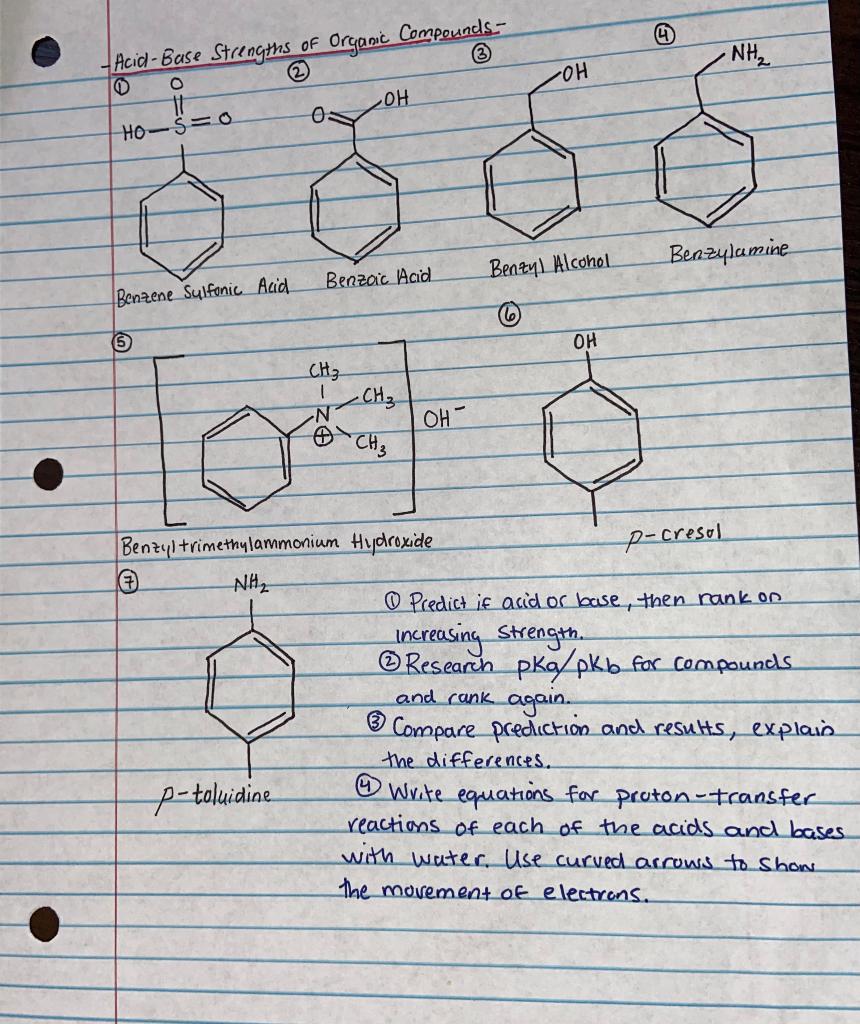 - Acid-Base Strengths of Organic Compounds -
① ② ③ ④
O
HO-S=O
O OH
OH
NH₂
Benzene Sulfonic Acid
Benzoic Acid
Benzyl Alcohol
Benzylamine
⑤
CH₃
N CH₃
⊕ CH₃
OH⁻
Benzyltrimethylammonium Hydroxide
⑥
OH
p-cresol
⑦
NH₂
p-toluidine
① Predict if acid or base, then rank on
increasing strength.
② Research pKa/pKb for compounds
and rank again.
③ Compare prediction and results, explain
the differences.
④ Write equations for proton-transfer
reactions of each of the acids and bases
with water. Use curved arrows to show
the movement of electrons.